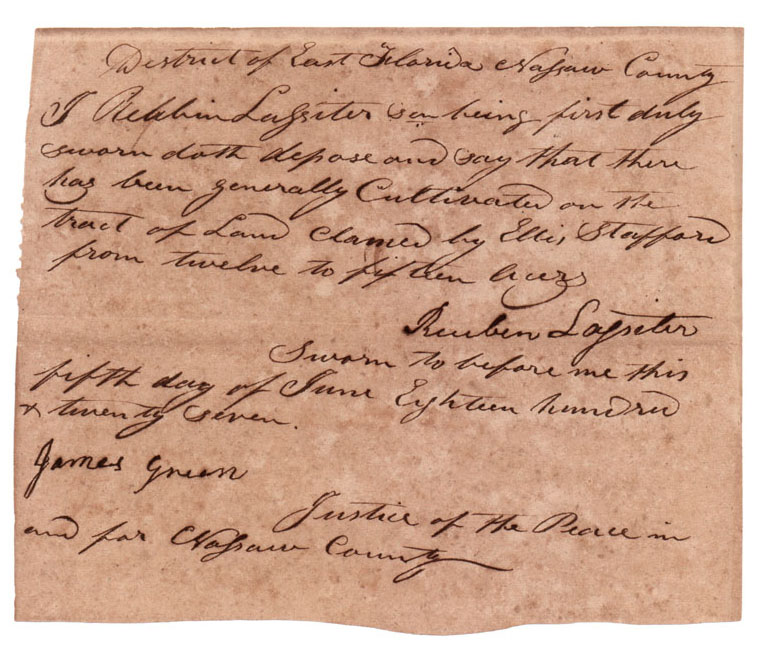 District of East Florida Nassaw County
I Rebbin Lassiter sen being first duly
sworn doth depose and say that there
has been generally Cultivated on the
tract of Land Clamed by Ellis Stafford
from twelve to fifteen Acers
Reuben Lassiter
Sworn to before me this
fifth day of June Eighteen hundred
& twenty seven.
James Green
Justice of the Peace in
and for Nassaw County